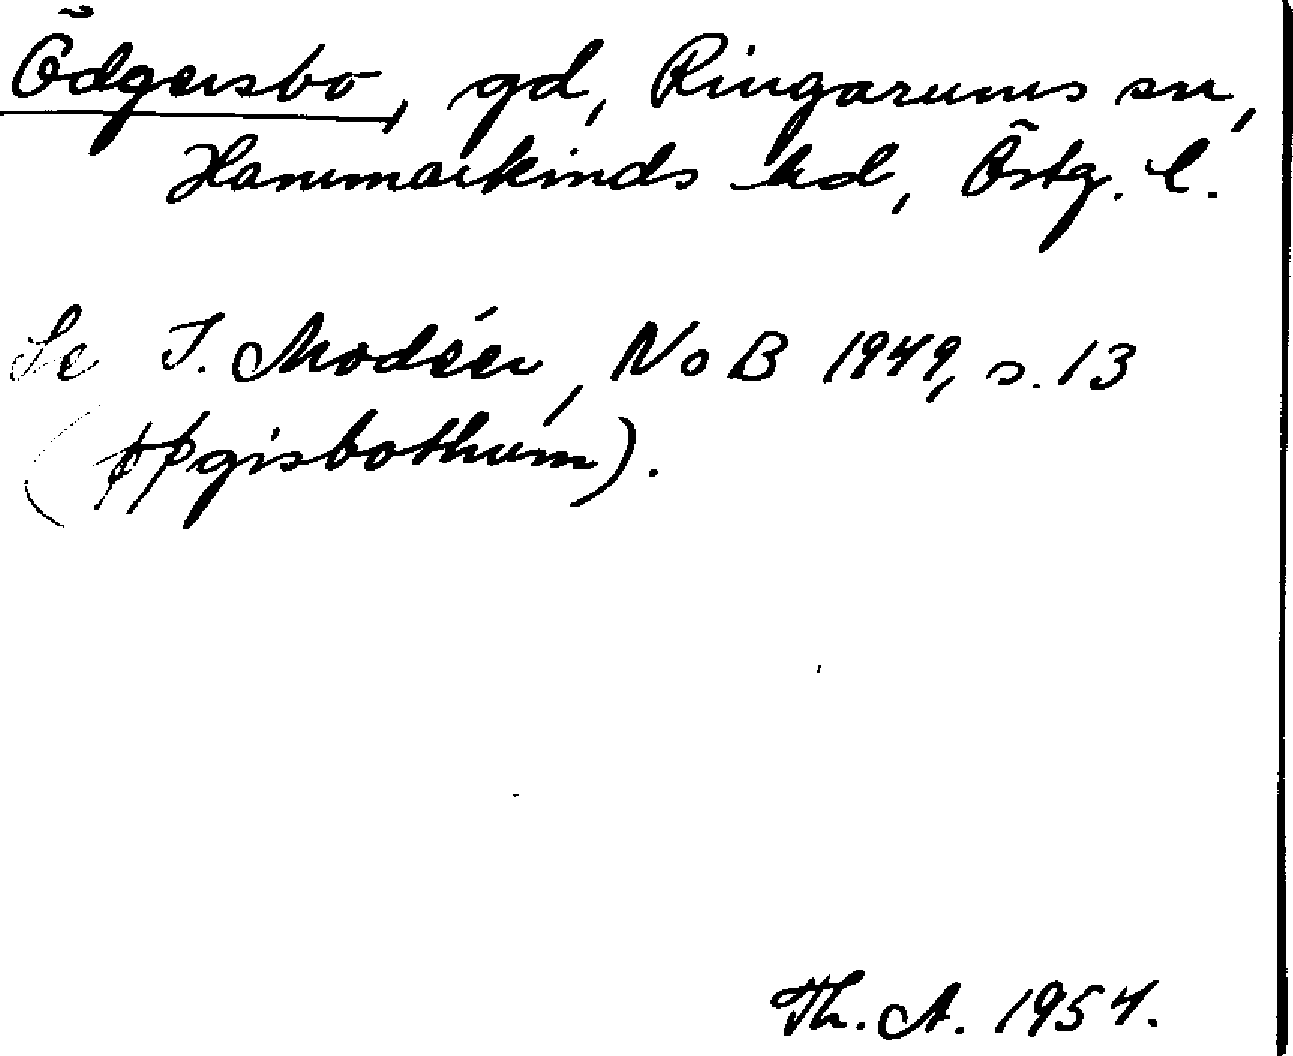 Ödgersbo, gd, Ringarums sn,
Hammarkinds hd, Östg. l.
Se I. Modéer, NoB 1949, s. 13
(øþgisbothum).
Th. A. 1954.